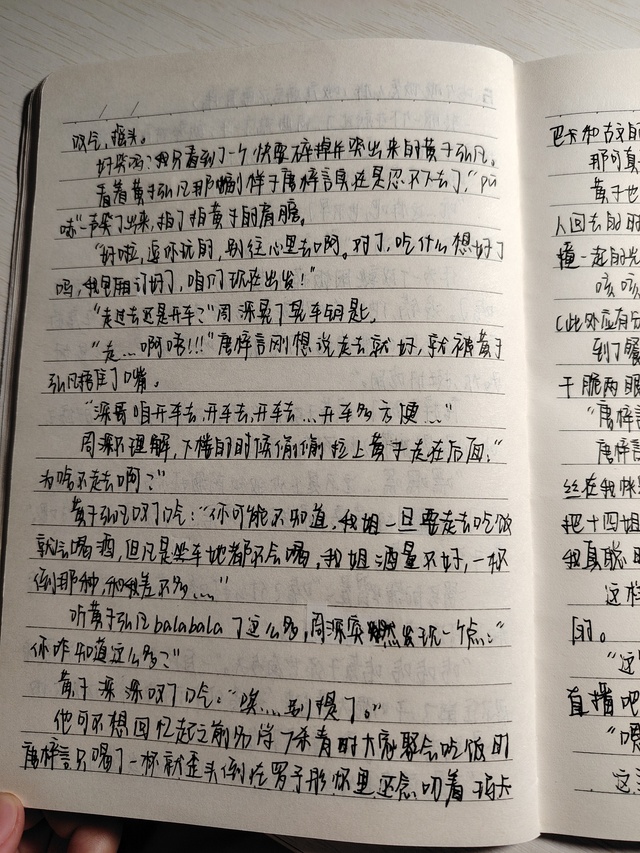 叹气，摇头。
好笑吗？我只看到了一个快要碎掉并哭出来的黄子弘凡。
看着黄子弘凡那幅样子唐梓言良还是忍不下去了，“pu
哧”一声笑了出来，拍了拍黄子的肩膀。
“好啦，逗你玩的，别往心里去啊。对了，吃什么想好了
吗，我包厢订好了，咱们现在出发！”
“走过去还是开车？”周深晃了晃车钥匙。
“走…啊唔!!!”唐梓言刚想说走去就好，就被黄子
弘凡捂住了嘴。
“深哥咱开车去，开车去，开车去…开车多方便…”
周深不理解，下楼的时候偷偷拉上黄子走在后面，“
为啥不走去啊？”
黄子弘凡叹了口气：“你可能不知道，我姐一旦要走去吃饭
就会喝酒，但凡是坐车她都不会喝，我姐酒量不好，一杯
倒那种，和我差不多…”
听黄子弘凡balabala了这么多，周深突然发现一个点：“
你咋知道这么多？”
黄子深深叹了口气：“唉…别提了。”
他可不想回忆起之前 杀青时大家聚会吃饭时
唐梓言只喝了一杯就歪头倒在罗子彤怀里还念叨着
巴卡和古文
那可真
黄子也
人回去的时
撞一起的
咳咳
(此处应有
到了餐
干脆两眼
“唐梓言
唐梓言
丝在我
把十四姐
我真聪明
这样
的。
“这
直播吧
“喂
这